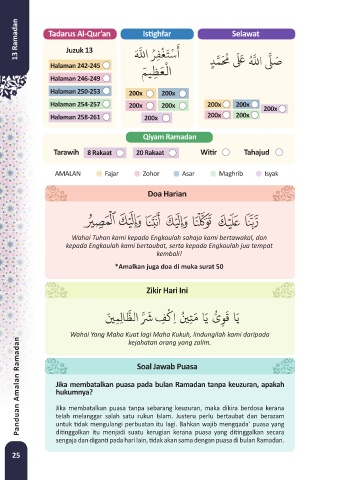 13 Ramadan
Tadarus Al-Qur'an
Istighfar
Selawat
Juzuk 13
Halaman 242-245
Halaman 246-249
Halaman 250-253
Halaman 254-257
Halaman 258-261
أَسْتَغْفِرُ اللَّهَ
الْعَظِيمَ
200x 200x
200x 200x
200x
صَلَّى اللَّهُ عَلَى مُحَمَّدٍ
200x 200x
200x
200x 200x
Qiyam Ramadan
Tarawih 8 Rakaat 20 Rakaat Witir Tahajud
AMALAN Fajar Zohor Asar Maghrib Isyak
Doa Harian
رَّبَّنَا عَلَيْكَ تَوَكَّلْنَا وَإِلَيْكَ أَنَبْنَا وَإِلَيْكَ الْمَصِيرُ
Wahai Tuhan kami kepada Engkaulah sahaja kami bertawakal, dan
kepada Engkaulah kami bertaubat, serta kepada Engkaulah jua tempat
kembali!
*Amalkan juga doa di muka surat 50
Zikir Hari Ini
يَا قَوِيُّ يَا مَتِينُ اِكْفِ شَرَّ الظَّالِمِينَ
Wahai Yang Maha Kuat lagi Maha Kukuh, lindungilah kami daripada
kejahatan orang yang zalim.
Soal Jawab Puasa
Jika membatalkan puasa pada bulan Ramadan tanpa keuzuran, apakah
hukumnya?
Jika membatalkan puasa tanpa sebarang keuzuran, maka dikira berdosa kerana
telah melanggar salah satu rukun Islam. Justeru perlu bertaubat dan berazam
untuk tidak mengulangi perbuatan itu lagi. Bahkan wajib mengqada' puasa yang
ditinggalkan itu menjadi suatu kerugian kerana puasa yang ditinggalkan secara
sengaja dan diganti pada hari lain, tidak akan sama dengan puasa di bulan Ramadan.
Panduan Amalan Ramadan
25